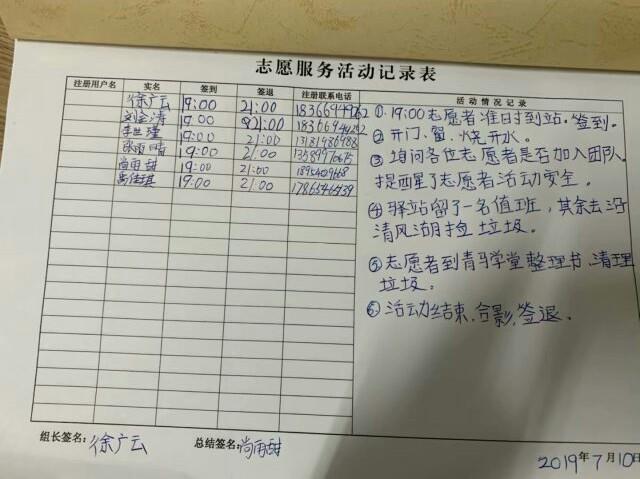 志愿服务活动记录表
注册用户名 实名 签到 签退 注册联系电话 活动情况记录
徐广云 19:00 21:00
刘会涛 19:00 21:00
李世瑾 19:00 21:00
19:00 21:00
尚雨甜 19:00 21:00
19:00 21:00
①.19:00志愿者准时到站。签到。
②开门、窗、烧开水。
③询问各位志愿者是否加入团队。
提醒了志愿者活动安全。
④驿站留了一名值班,其余去沿
清风湖捡垃圾。
⑤志愿者到青马学堂整理书、清理
垃圾。
⑥活动结束,合影,签退。
组长签名:徐广云 总结签名:尚雨甜
2019年7月10日